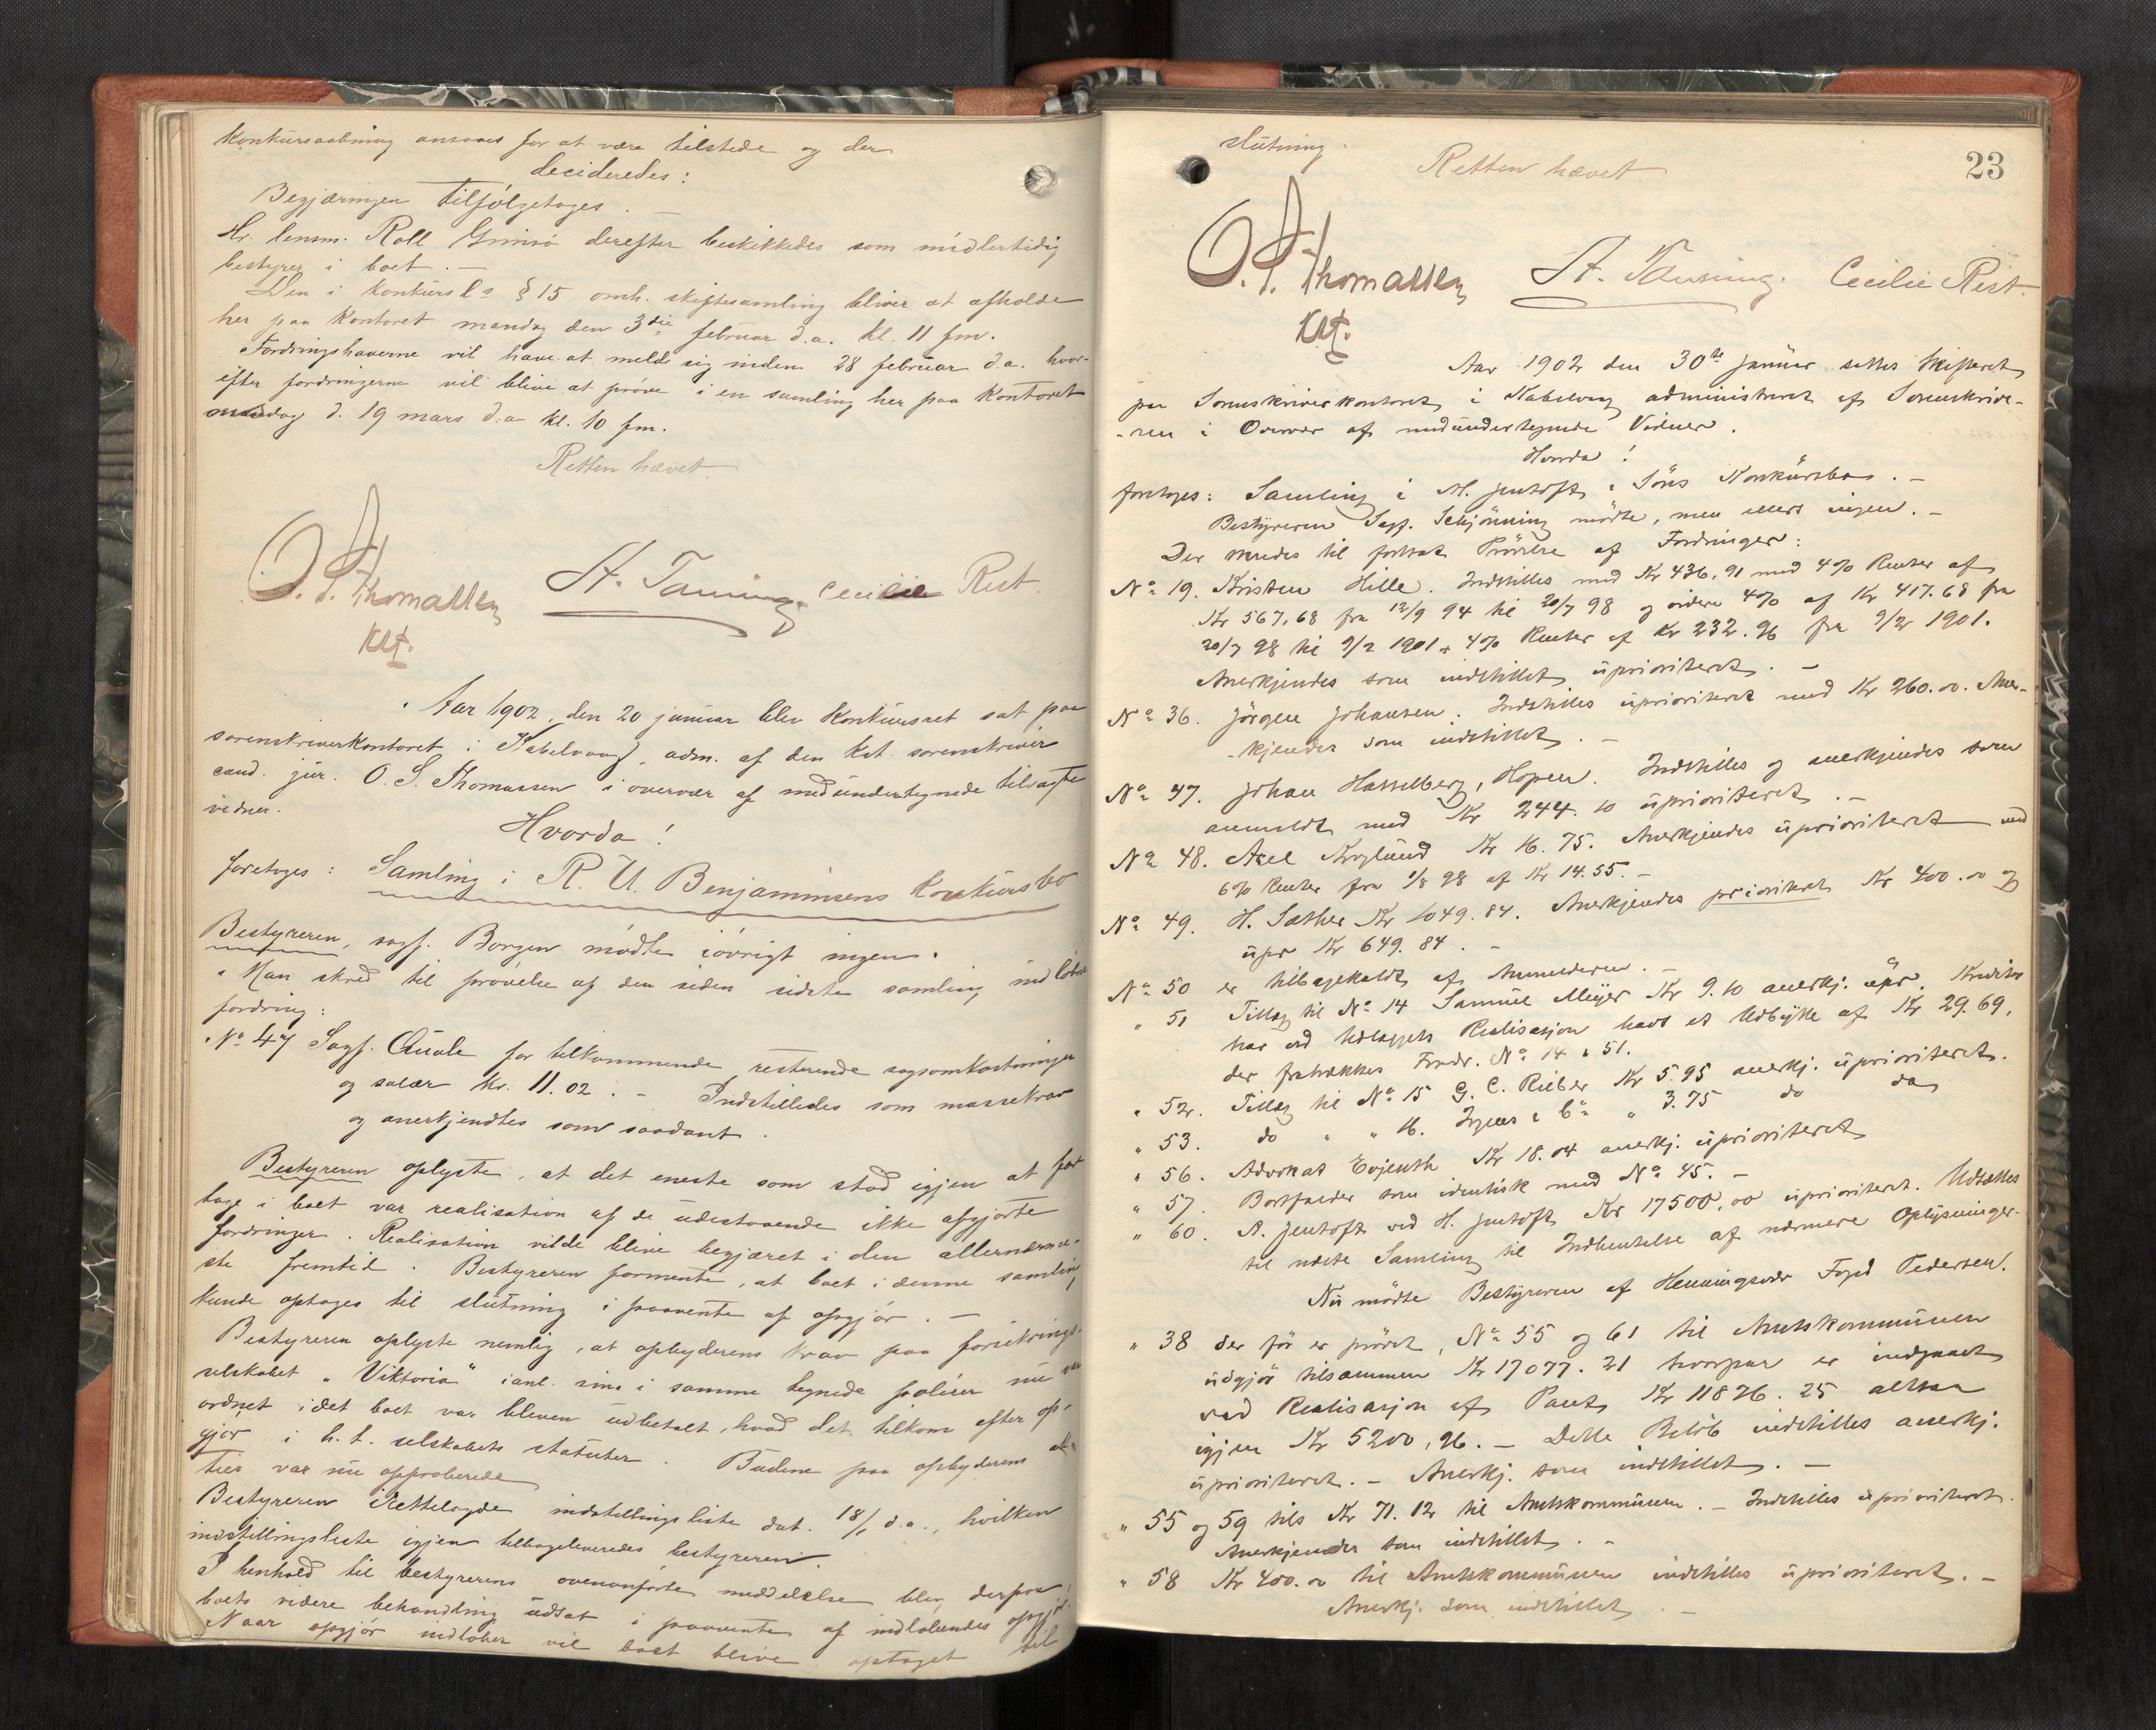 Konkursaabning ansaaes for at være tilstede og der
decideredes:
Begjæringen tilfølgetages. —
Hr. lensm. Roll Grimsø derefter beskikkedes som midlertidig
bestyrer i boet. —
Den i konkursl.s § 15 omh. skiftesamling bliver at afholde
her paa kontoret mandag den 3die februar d.a. kl. 11 fm.
Fordringshaverne vil have at melde sig inden 28 februar d.a. hvor-
efter fordringerne vil blive at prøve i en samling her paa kontoret
d. 19 mars d.a. kl. 10 fm.
Retten hævet
O. S. Thomassen St. Tanning. Cecilie Rist.
Kst.
Aar 1902, den 20 januar blev Konkursret sat paa
sorenskriverkontoret i Kabelvaag, adm. af den kst. sorenskriver
cand. jur. O. S. Thomassen i overvær af medundertegnede tilsagte
vidner.
Hvorda!
foretoges: Samling i R. U. Benjaminsens Konkursbo
Bestyreren, sagf. Borgen mødte iøvrigt ingen.
Man skred til prøvelse af den siden sidste samling indløbne
fordring:
No 47 Sagf. Quale for tilkommende resterende sagsomkostninger
og salær kr. 11.02. - Indstilledes som massekrav
og anerkjendtes som saadant.
Bestyreren oplyste, at det eneste som stod igjen at fore
tage i boet var realisation af de udestaaende ikke afgjorte
fordringer. Realisation vilde blive begjæret i den allernærme-
ste fremtid. Bestyreren formente, at boet i denne samling
kunde optages til slutning i paavente af opgjør. —
Bestyreren oplyste nemlig, at opbyderens krav paa forsikrings-
selskabet "Viktoria" i anl. sine i samme tegnede policer nu var
ordnet idet boet var bleven udbetalt, hvad det tilkom efter op-
gjør i h. t. selskabets statuter. Budene paa opbyderens ak-
tier var nu approberede
Bestyreren irettelagde indstillingsliste dat. 18/1 d.a., hvilken
indstillingsliste igjen tilbageleveredes bestyreren.
I henhold til bestyrerens ovenanførte meddelelse blev derpaa
boets videre behandling udsat i paavente af indløbendes opgjør.
Naar opgjør indløber vil boet blive optaget til
slutning.
Retten hævet
23
O. S. Thomassen St. Tanning. Cecilie Rist.
Kst.
Aar 1902 den 30te Januar sattes Skifteret
paa Sorenskriverkontoret i Kabelvaag administreret af Sorenskrive-
-ren i Overvær af medundertegnede Vidner.
Hvorda!
foretoges: Samling i M. Jentoft & Søns Konkursbo. —
Bestyreren Sagf. Schjønning mødte, men ellers ingen. —
Der skredes til fortsat Prøvelse af Fordringer:
No 19. Kristen Hille. Indstilles med Kr 436,91 med 4% Renter af
Kr 567,68 fra 12/9 94 til 20/7 98 og videre 4% af Kr 417.68 fra
20/7 98 til 9/2 1901 + 4% Renter af Kr 232.96 fra 9/2 1901.
Anerkjendes som indstillet uprioriteret. —
No 36. Jørgen Johansen. Indstilles uprioriteret med Kr 260.00. Aner-
-kjendes som indstillet. —
No 47. Johan Hasselberg, Hopen. Indstilles og anerkjendes som
anmeldt med Kr 244.10 uprioriteret. —
No 48. Axel Kroglund Kr 16.75. Anerkjendes uprioriteret med
6% Renter fra 1/8 98 af Kr 14.55. —
No 49. H. Sæther Kr 1049.84. Anerkjendes prioriteret Kr 400.00 og
upr Kr 649.84. —
No 50 er tilbagekaldt af Anmelderen. —
" 51 Tillæg til No 14 Samuel Meyer Kr 9.10 anerkj. upr. Kreditor
har ved Udlæggets Realisasjon havt et Udbytte af Kr 29.69,
der fratrækkes Fordr. No 14 & 51.
" 52. Tillæg til No 15 G. C. Rieber Kr 5.95 anerkj. uprioriteret.
" 53. do " " 16. & Co " 3.75 do do
" 56. Advokat Evjenth Kr 18.04 anerkj. uprioriteret
" 57. Bortfalder som identisk med No 45. —
" 60. A. Jentoft ved H. Jentoft Kr 17500,00 uprioriteret. Udsættes
til næste Samling til Indhentelse af nærmere Oplysninger.
Nu mødte Bestyreren af Henningsvær Fogd Pedersen.
" 38 der før er prøvet, No 55 og 61 til Amtskommunen
udgjør tilsammen Kr 17077.21 hvorpaa er indgaaet
ved Realisasjon af Pant Kr 11876.25 altsaa
igjen Kr 5200,96. — Dette Beløb indstilles anerkj.
uprioriteret. — Anerkj. som indstillet. —
" 55 og 59 tils Kr 71.12 til Amtskommunen. — Indstilles uprioriteret.
Anerkjendes som indstillet. —
" 58 Kr 400.00 til Amtskommunen indstilles uprioriteret. —
Anerkj. som indstillet. —